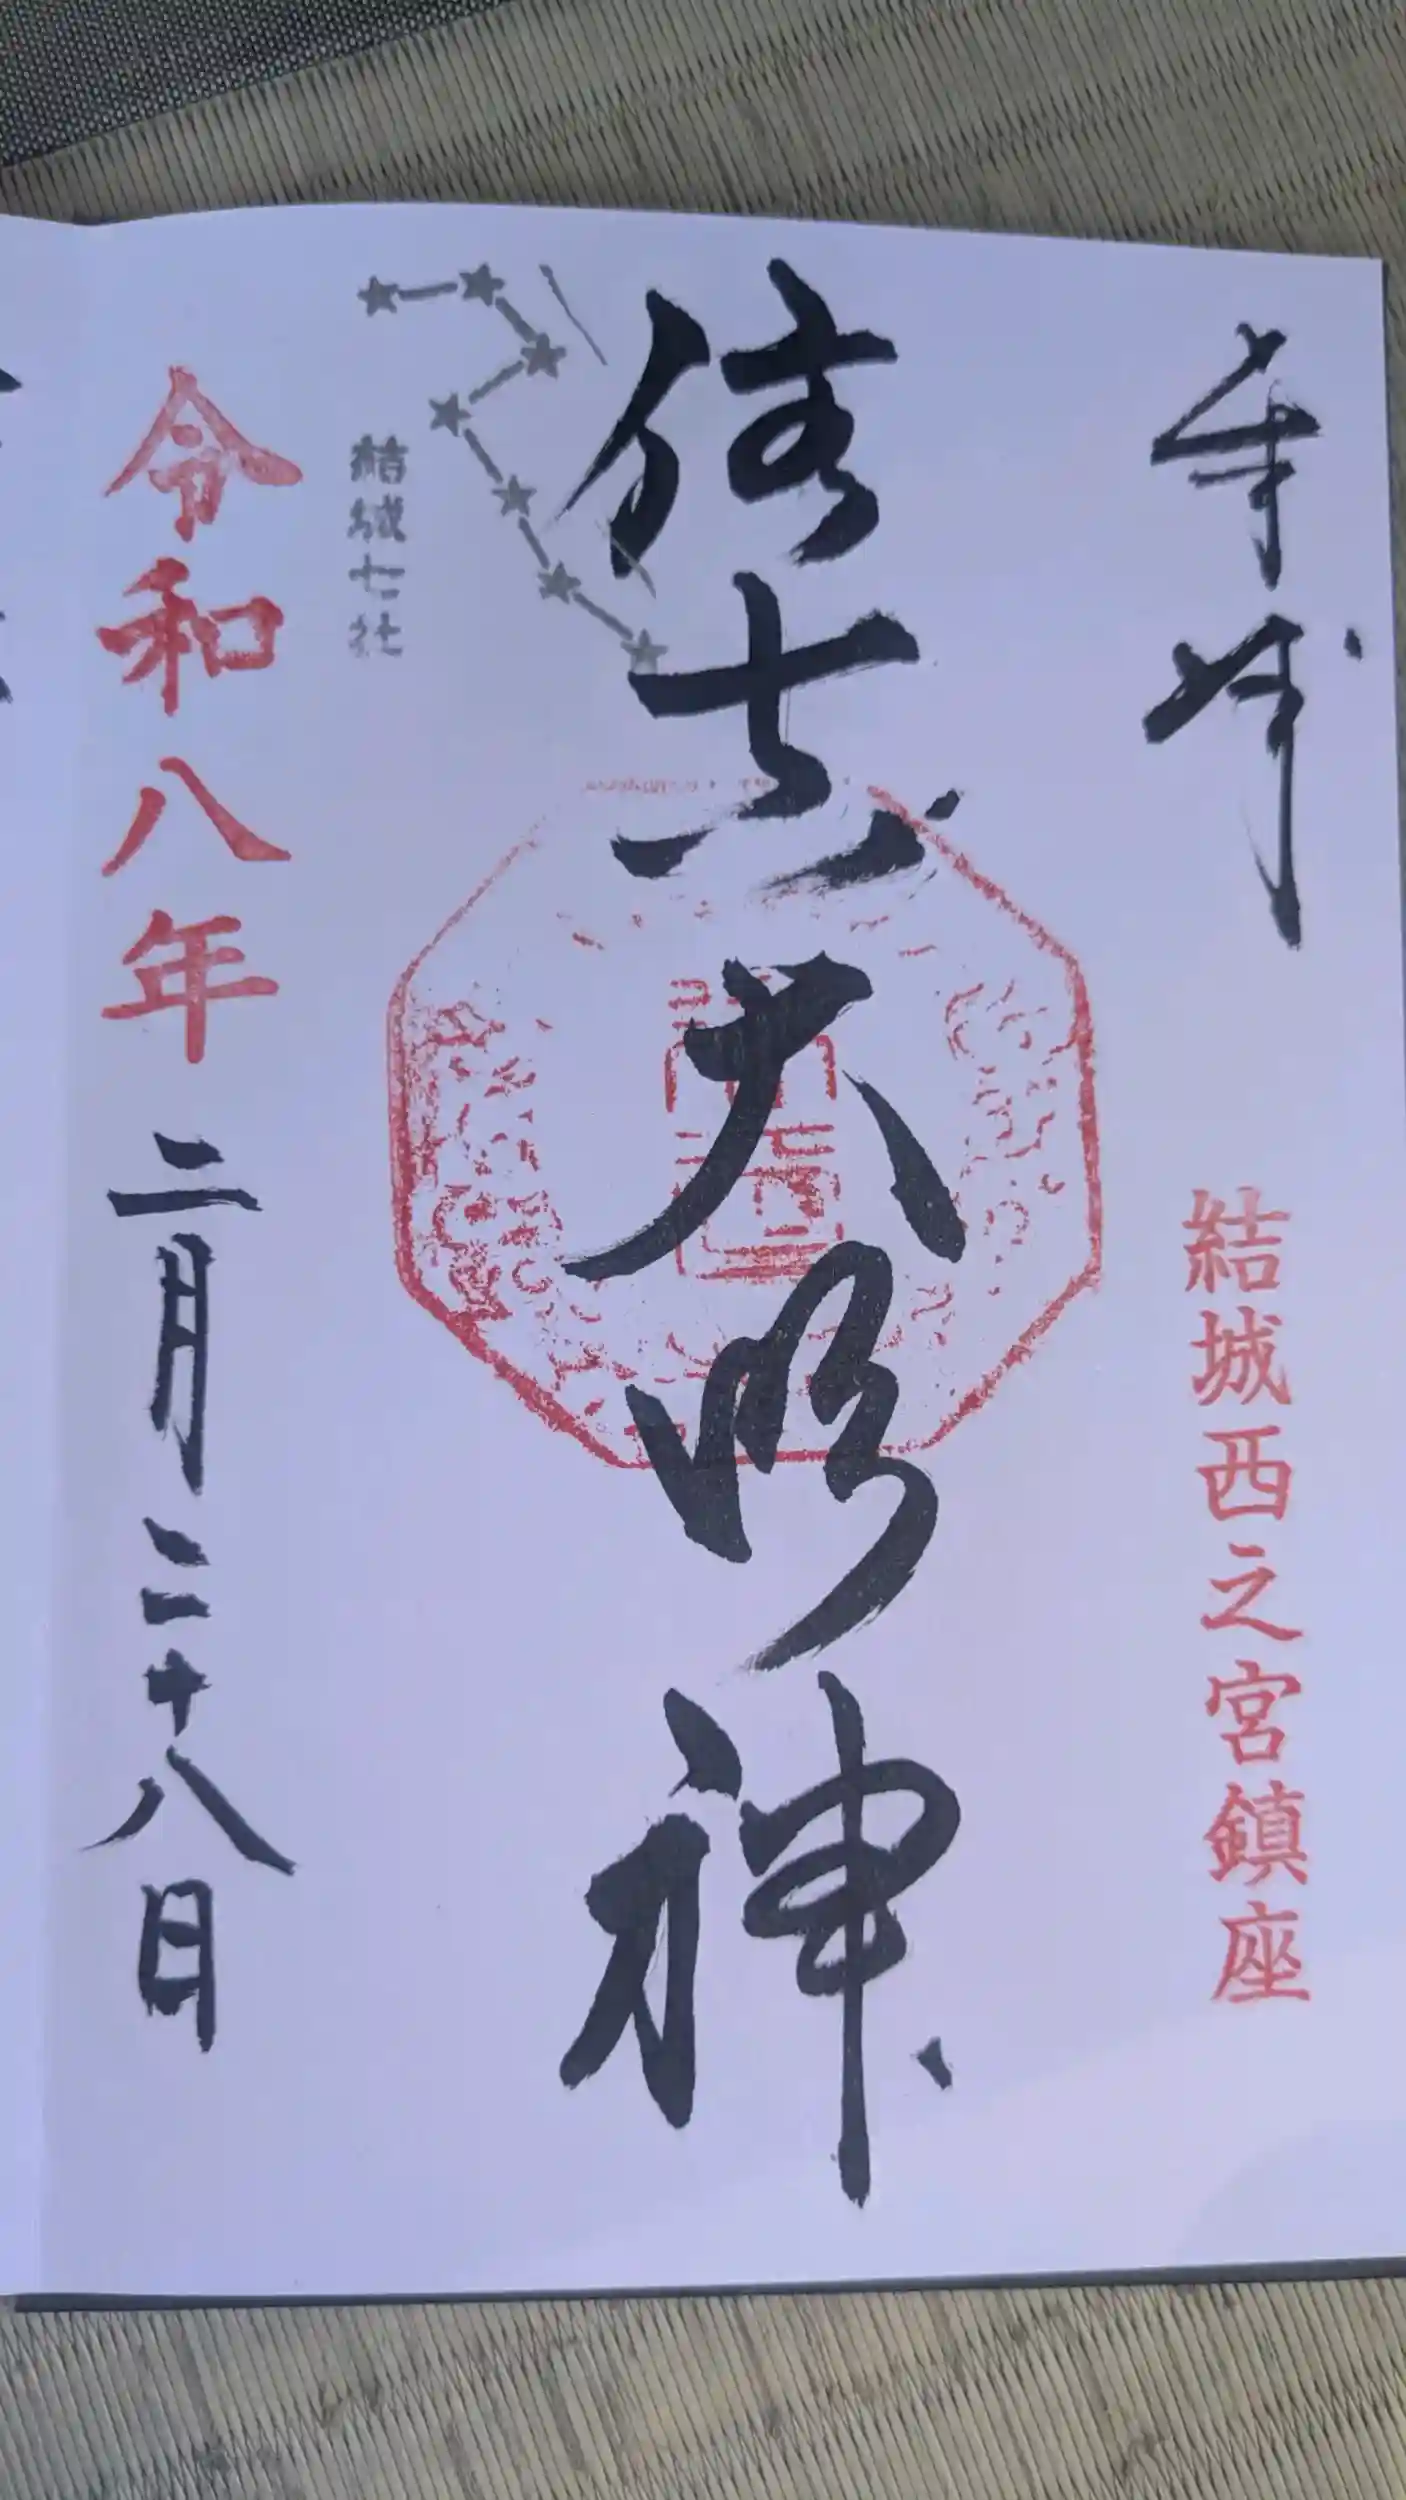 奉拝
結城西之宮鎮座
住吉大明神
結城七社
令和八年二月二十八日